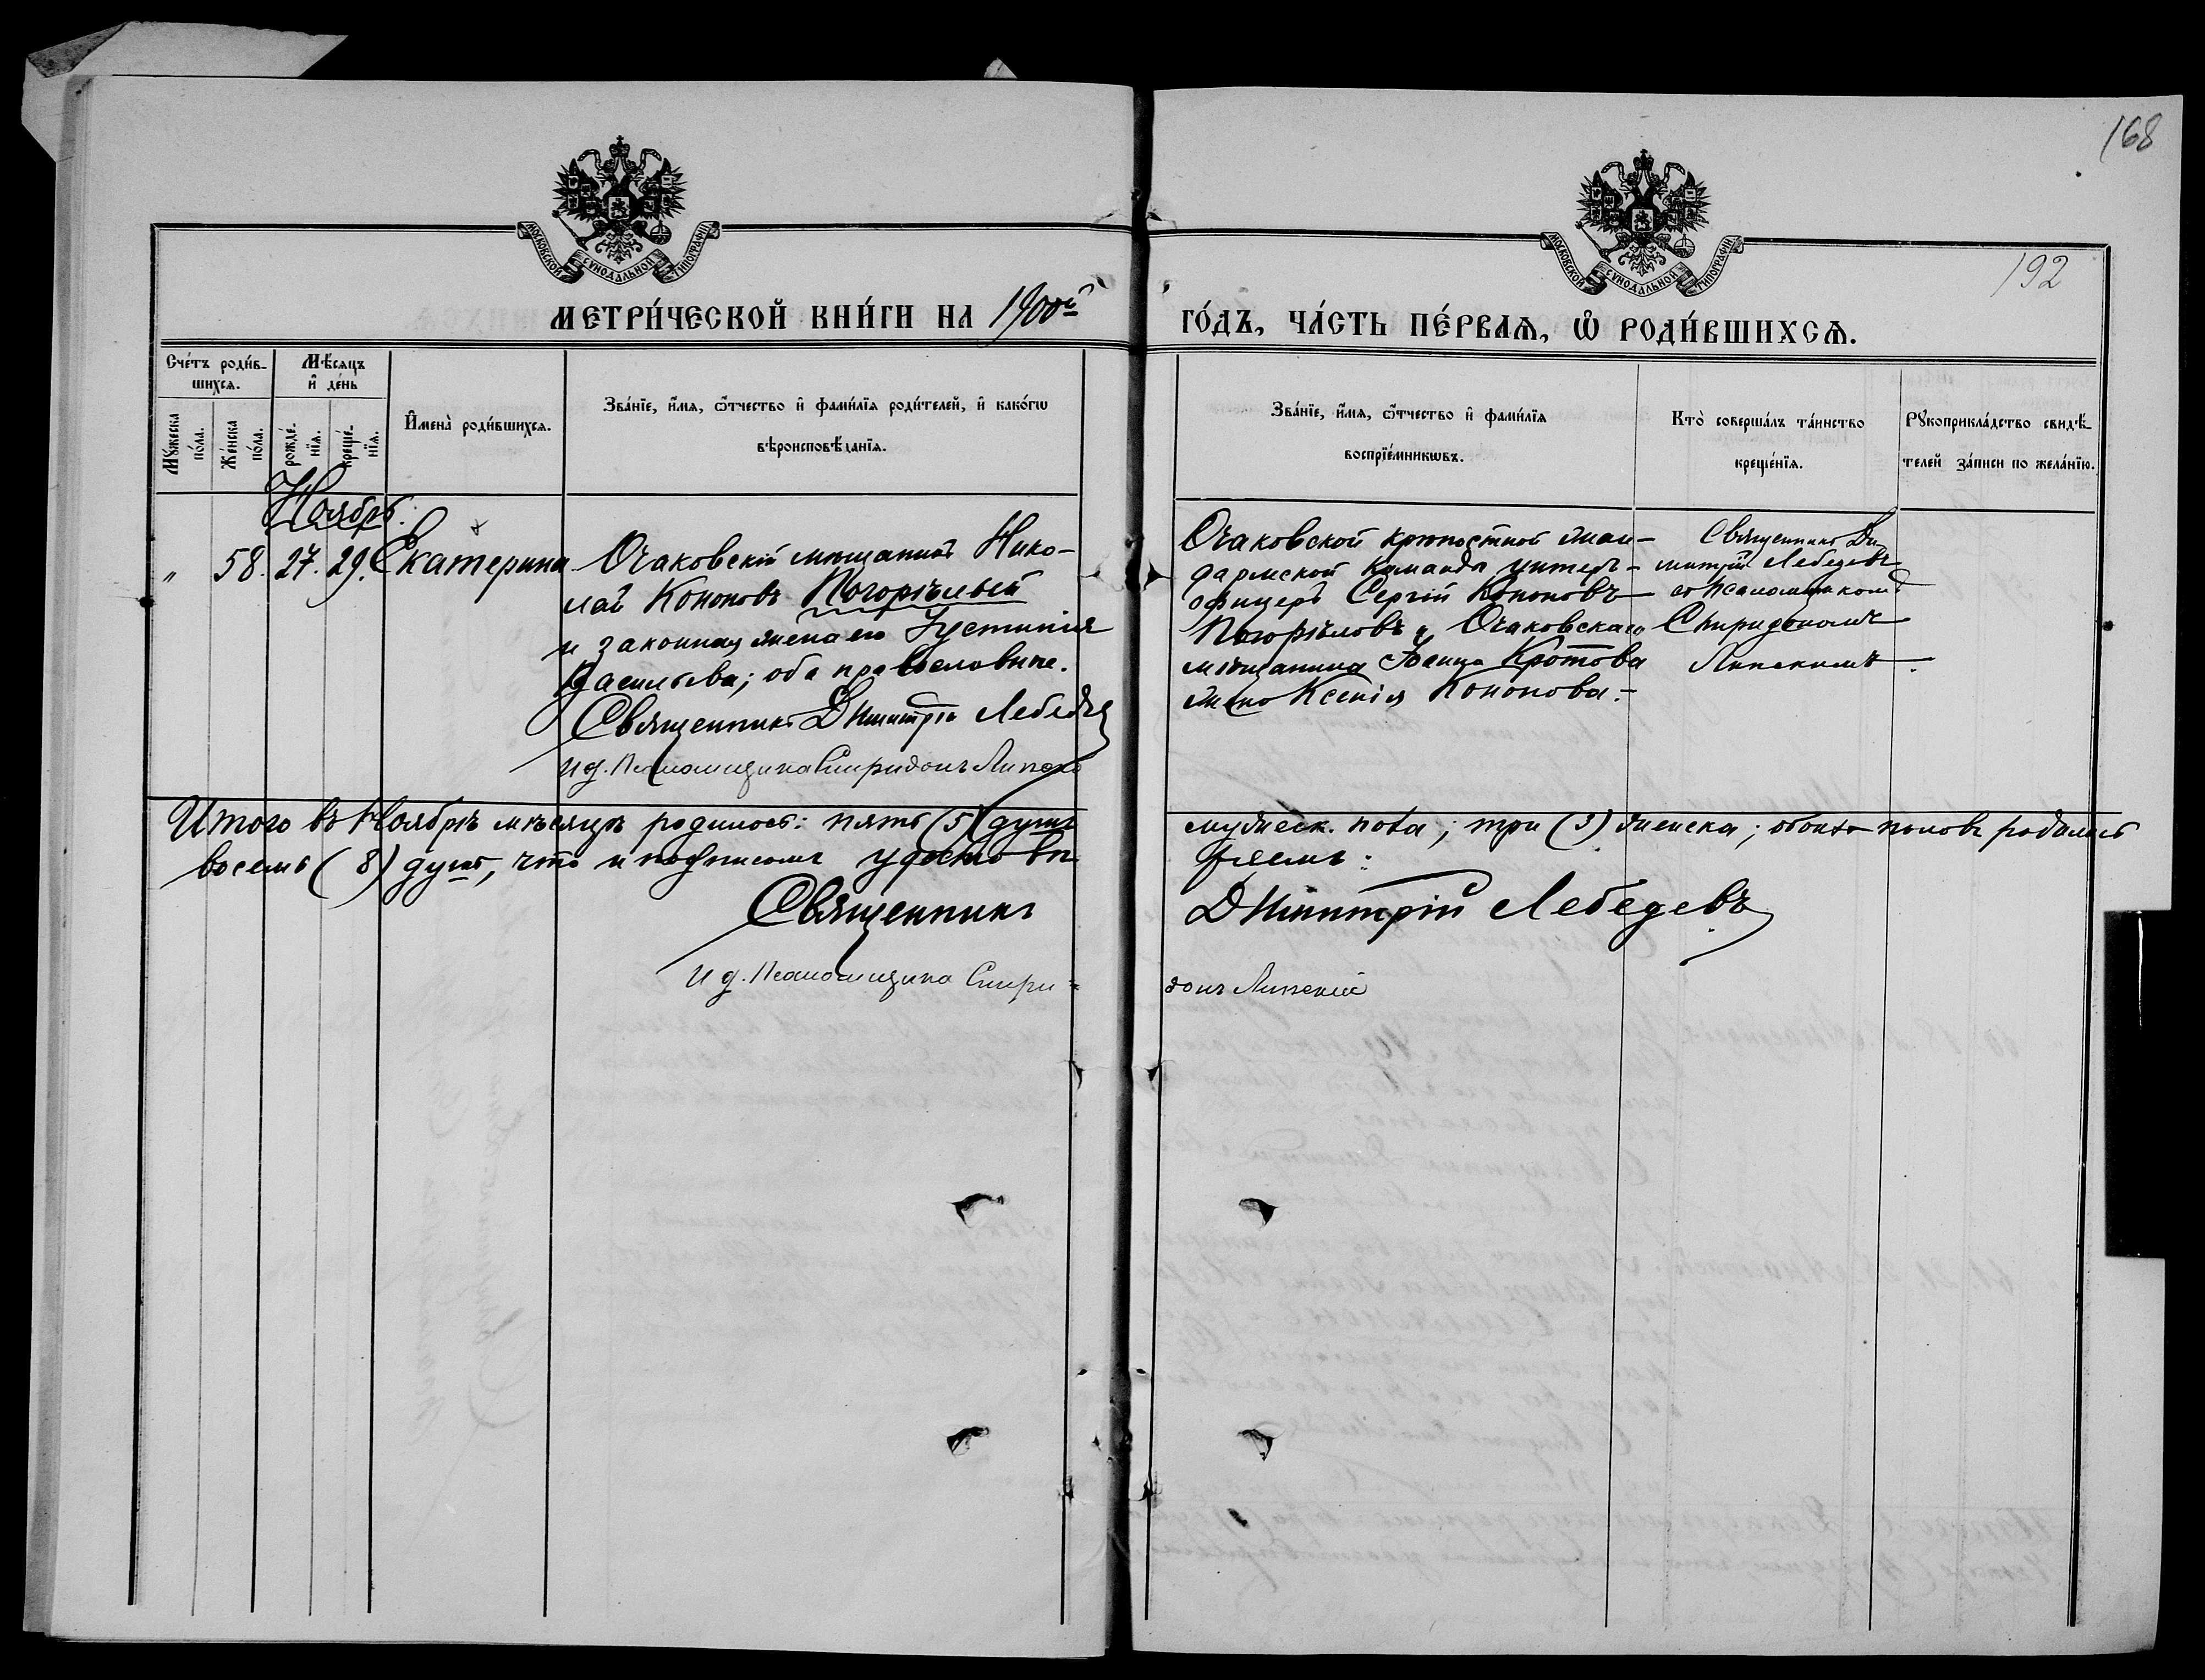 168
192
МОСКОВСКОЙ СѴНОДАЛЬНОЙ ТИПОГРАФІИ
МОСКОВСКОЙ СѴНОДАЛЬНОЙ ТИПОГРАФІИ
МЕТРИ́ЧЕСКОЙ КНИ́ГИ НА 1900й
ГО́ДЪ, ЧА́СТЬ ПЕ́РВАѦ, Ѡ҆ РОДИ́ВШИХСѦ.
Сче́тъ роди́в-
шихсѧ.
Мꙋ́жеска
по́ла.
Же́нска
по́ла.
Мѣ́сѧцъ
и҆ де́нь
рожде́-
нїѧ.
креще́-
нїѧ.
И҆мена̀ роди́вшихсѧ.
Зва́нїе, и҆́мѧ, ѻ҆́тчество и҆ фами́лїѧ роди́телей, и҆ како́гѡ
вѣроисповѣ́данїѧ.
Зва́нїе, и҆́мѧ, ѻ҆́тчество и҆ фами́лїѧ
воспрїе́мникѡвъ.
Кто̀ соверша́лъ та́инство
креще́нїѧ.
Рꙋкоприкла́дство свидѣ́-
телей за́писи по жела́нїю.
Ноябрь.
" 58. 27. 29. Екатерина
Очаковскій мѣщанинъ Нико-
лай Кононовъ Погорѣлый
и законная жена его Іустинія
Васильева; оба православные.
Священникъ Димитрій Лебедев
И д. Псаломщика Спиридонъ Липск
Очаковской крѣпостной жан-
дармской команды унтеръ-
офицеръ Сергій Кононовъ
Погорѣловъ и Очаковскаго
мѣщанина Кротова
жена Ксенія Кононова.
Священникъ Ди-
митрій Лебедевъ
съ псаломщикомъ
Спиридономъ
Липскимъ.
Итого въ Ноябрѣ мѣсяцѣ родилось: пять (5) душъ мужеск. пола; три (3) женска; обоихъ половъ родилось
восемь (8) душъ, что и подписомъ удостовѣ-
ряемъ:
Священникъ Димитрій Лебедевъ
И д. Псаломщика Спири-
донъ Липскій